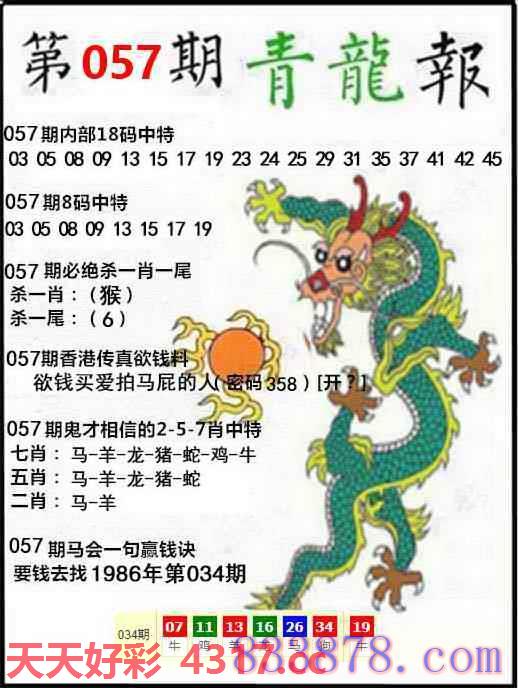 第057期青龍報
057期内部18码中特
03 05 08 09 13 15 17 19 23 24 25 29 31 35 37 41 42 45
057期8码中特
03 05 08 09 13 15 17 19
057期必绝杀一肖一尾
杀一肖：（猴）
杀一尾：（6）
057期香港传真欲钱料
欲钱买爱拍马屁的人(密码358)[开?]
057期鬼才相信的2-5-7肖中特
七肖：马-羊-龙-猪-蛇-鸡-牛
五肖：马-羊-龙-猪-蛇
二肖：马-羊
057期马会一句赢钱诀
要钱去找1986年第034期
034期 07 11 13 16 26 34 19
牛 鸡 羊 马 狗 牛
天天好彩 4317.cc